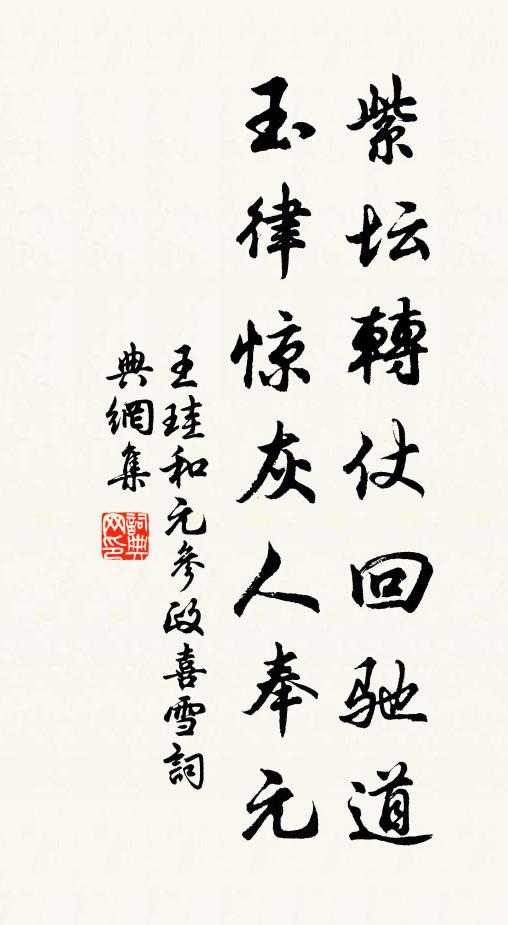 紫坛轉仗回驰道
玉律惊灰人奉元
王珪和元參政喜雪詞
典網集
詞典网印